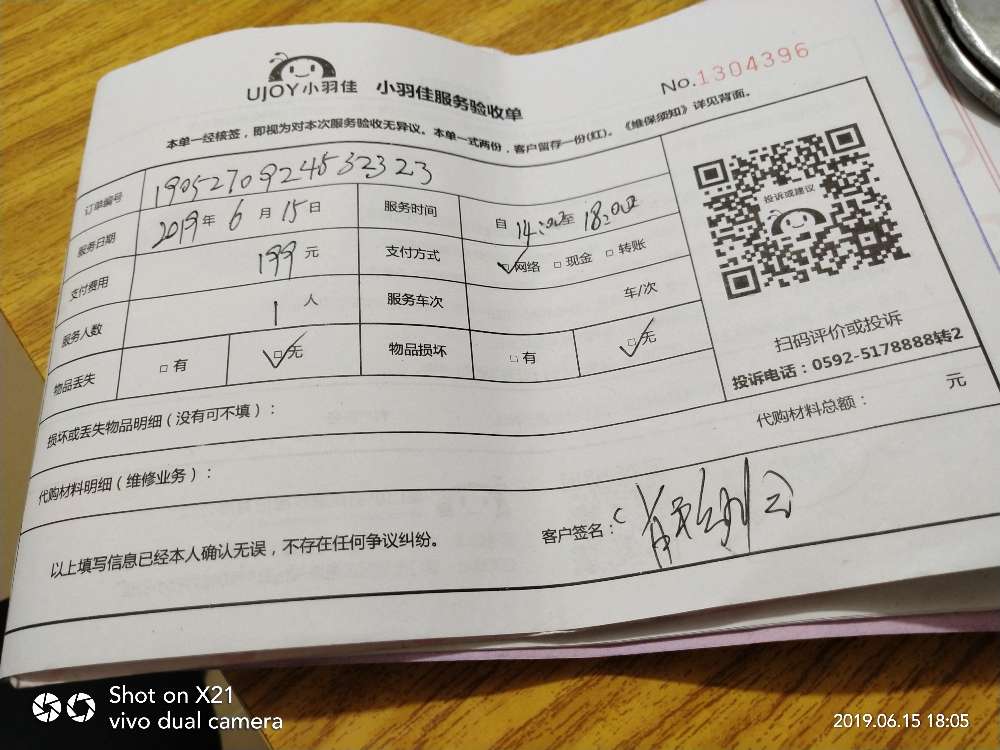 UJOY小羽佳 小羽佳服务验收单
No.1304396
本单一经核签，即视为对本次服务验收无异议。本单一式两份，客户留存一份(红)。《维保须知》详见背面。
订单编号 1905270924532323
服务日期 2019年 6 月 15 日 服务时间 自 14:00至 18:00
支付费用 199 元 支付方式 □网络 □现金 □转账
服务人数 1 人 服务车次 车/次
物品丢失 □有 □无 物品损坏 □有 □无
投诉或建议
扫码评价或投诉
投诉电话：0592-5178888转2
损坏或丢失物品明细（没有可不填）：
代购材料明细（维修业务）： 代购材料总额： 元
以上填写信息已经本人确认无误，不存在任何争议纠纷。 客户签名：
Shot on X21
vivo dual camera
2019.06.15 18:05